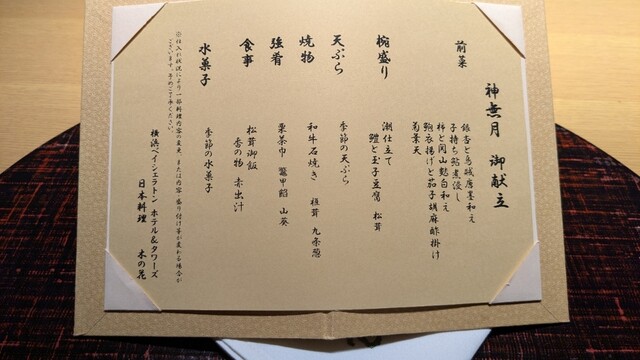 神無月 御献立
前菜
銀杏と烏賊唐墨和え
子持ち鮎煮浸し
柿と岡山鶴白和え
鮑衣揚げと茄子胡麻酢掛け
菊葉天
椀盛り
潮仕立て
鱧と玉子豆腐 松茸
天ぷら
季節の天ぷら
焼物
和牛石焼き 椎茸 九条葱
強肴
栗茶巾 鼈甲餡 山葵
食事
松茸御飯
香の物 赤出汁
水菓子
季節の水菓子
※仕入れ状況により一部料理内容の変更、または内容、盛り付け等が変わる場合が
ございます。予めご了承ください。
横浜ベイシェラトン ホテル&タワーズ
日本料理 木の花